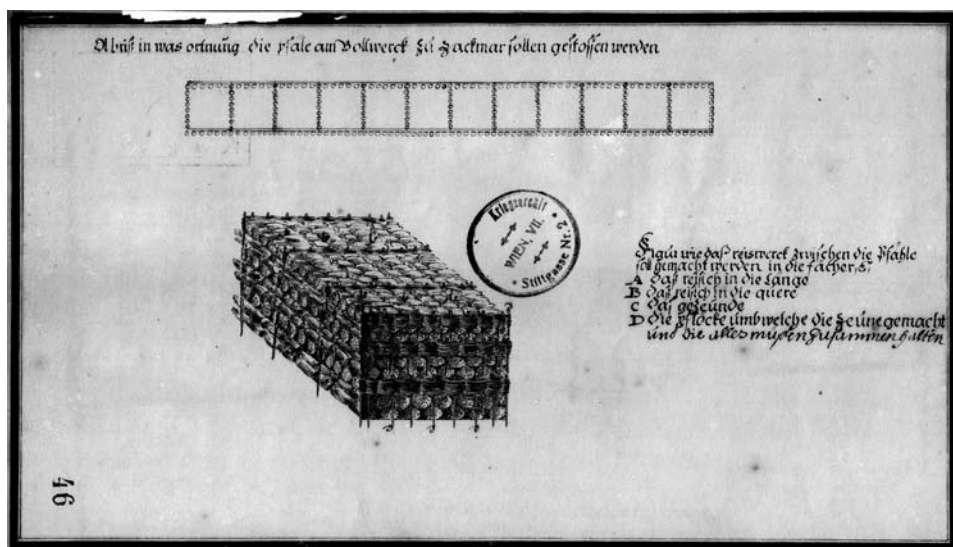 Abriß in was ortnung die pfäle am Bollwerck zu Zackmar sollen gestossen werden
Kriegsarchiv
WIEN, VII.
* Stiftgasse Nr. 2 *
Figur wie daß reiswerck zwischen die Pfähle
sol gemacht werden in die fächer,
A Daß reisich in die Länge
B Daß reisich in die quere
C Das gezeünde
D Die pflöcke umb welche die Zeüne gemacht
und die alles müßen zusammen halten
46